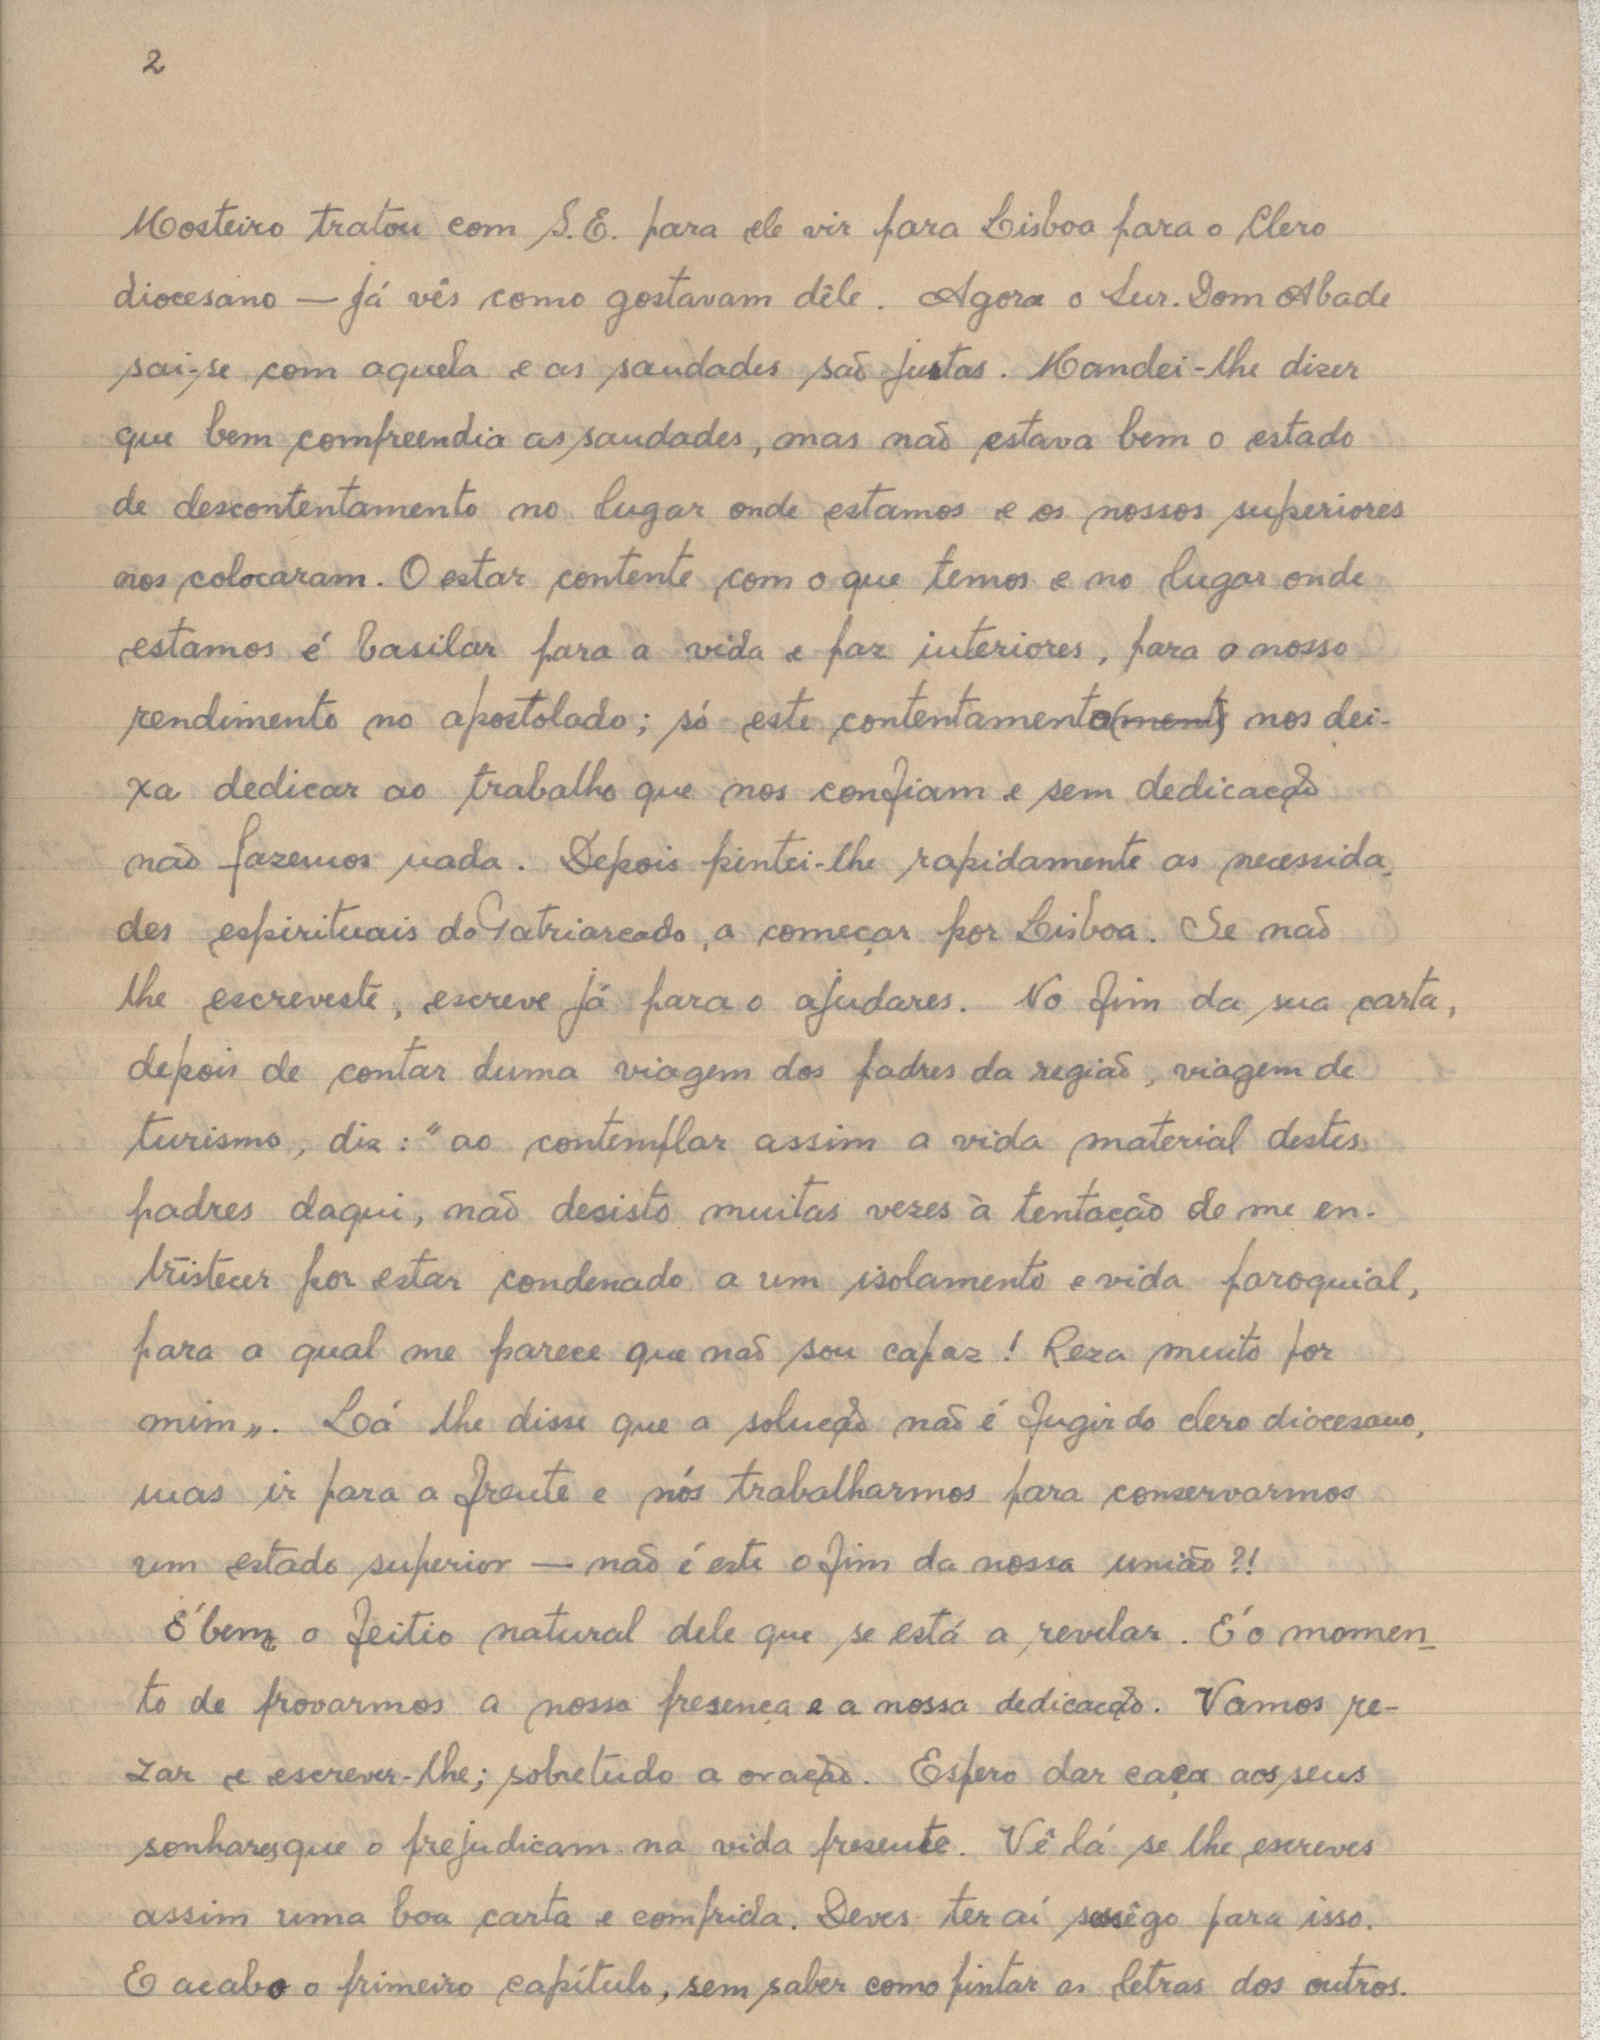 2
Mosteiro tratou com S.E. para ele vir para Lisboa para o Clero
diocesano — já vês como gostavam dêle. Agora o Sur. Dom Abade
sai-se com aquela e as saudades são justas. Mandei-lhe dizer
que bem compreendia as saudades, mas não estava bem o estado
de descontentamento no lugar onde estamos e os nossos superiores
nos colocaram. O estar contente com o que temos e no lugar onde
estamos é basilar para a vida e paz interiores, para o nosso
rendimento no apostolado; só este contentamento(ment) nos dei-
xa dedicar ao trabalho que nos confiam e sem dedicação
não fazemos nada. Depois pintei-lhe rapidamente as necessida-
des espirituais do Patriarcado, a começar por Lisboa. Se não
lhe escreveste, escreve já para o ajudares. No fim da sua carta,
depois de contar duma viagem dos padres da região, viagem de
turismo, diz: "ao contemplar assim a vida material destes
padres daqui, não desisto muitas vezes à tentação de me en-
tristecer por estar condenado a um isolamento e vida paroquial,
para a qual me parece que não sou capaz! Reza muito por
mim„. Lá lhe disse que a solução não é fugir do clero diocesano,
mas ir para a frente e nós trabalharmos para conservarmos
um estado superior — não é este o fim da nossa união?!
É bem o feitio natural dele que se está a revelar. É o momen-
to de provarmos a nossa presença e a nossa dedicação. Vamos re-
zar e escrever-lhe; sobretudo a oração. Espero dar caça aos seus
sonhares que o prejudicam na vida presente. Vê lá se lhe escreves
assim uma boa carta e comprida. Deves ter aí sossêgo para isso.
E acabo o primeiro capítulo, sem saber como pintar as letras dos outros.